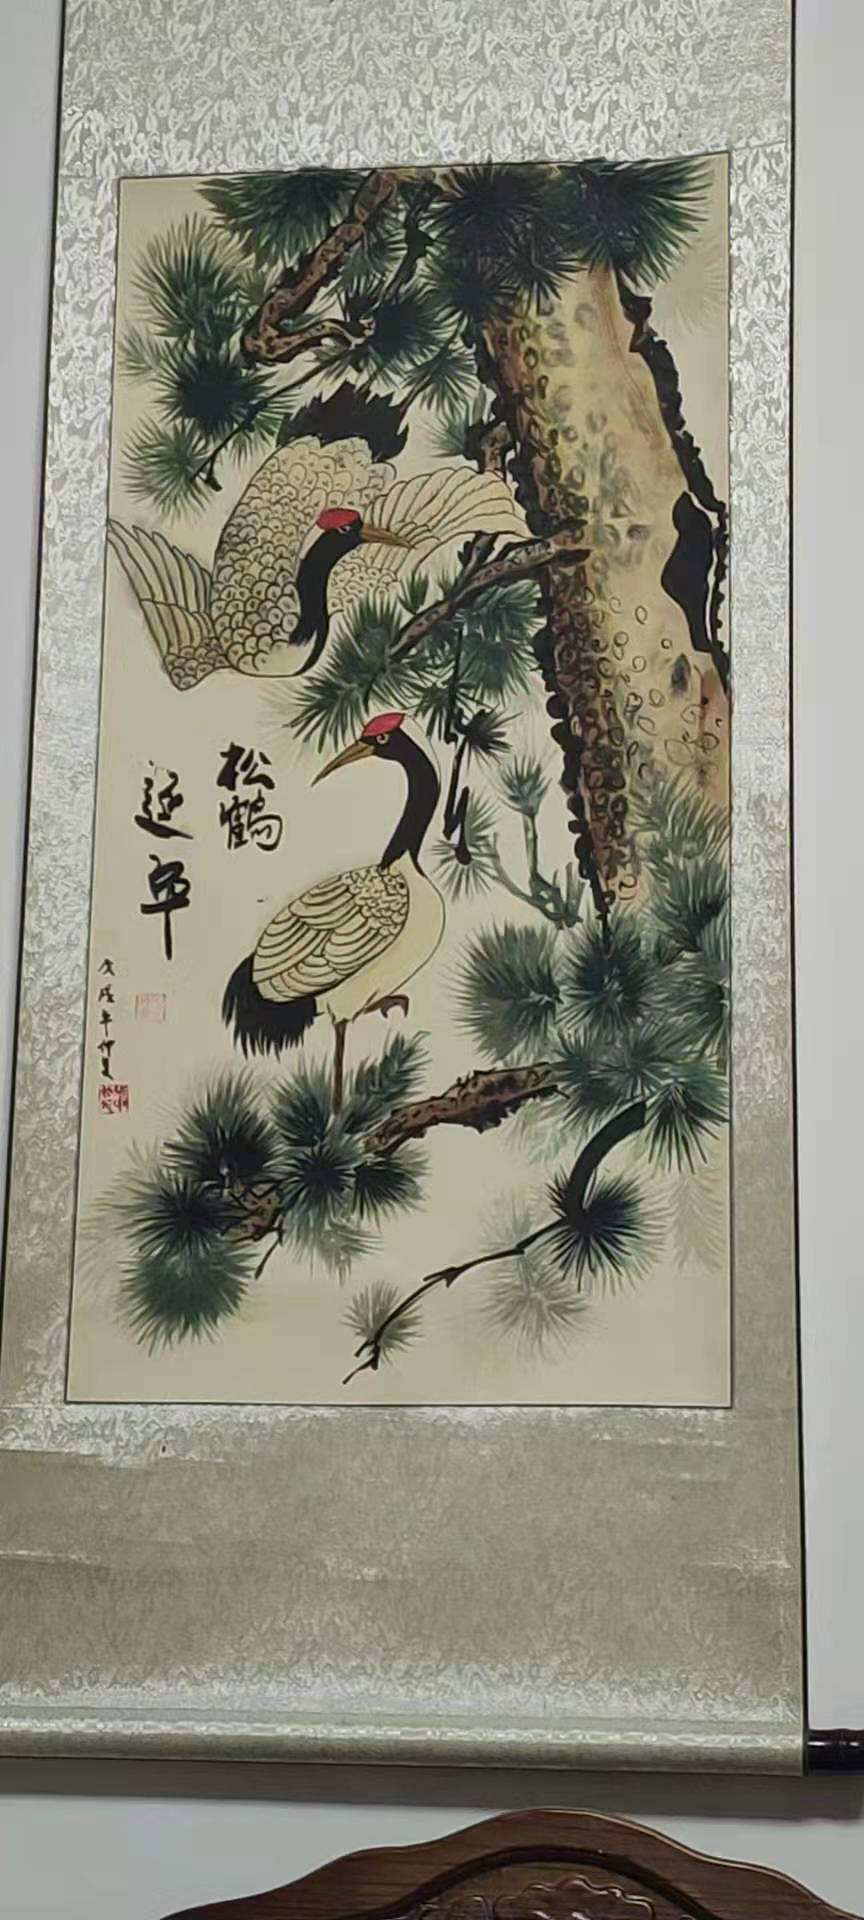 松鹤
延年
戊戌年仲夏